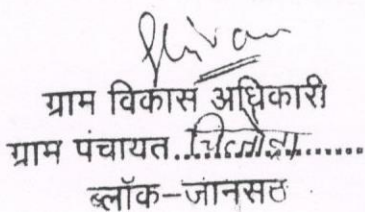 ग्राम विकास अधिकारी
ग्राम पंचायत..............
ब्लॉक-जानसठ